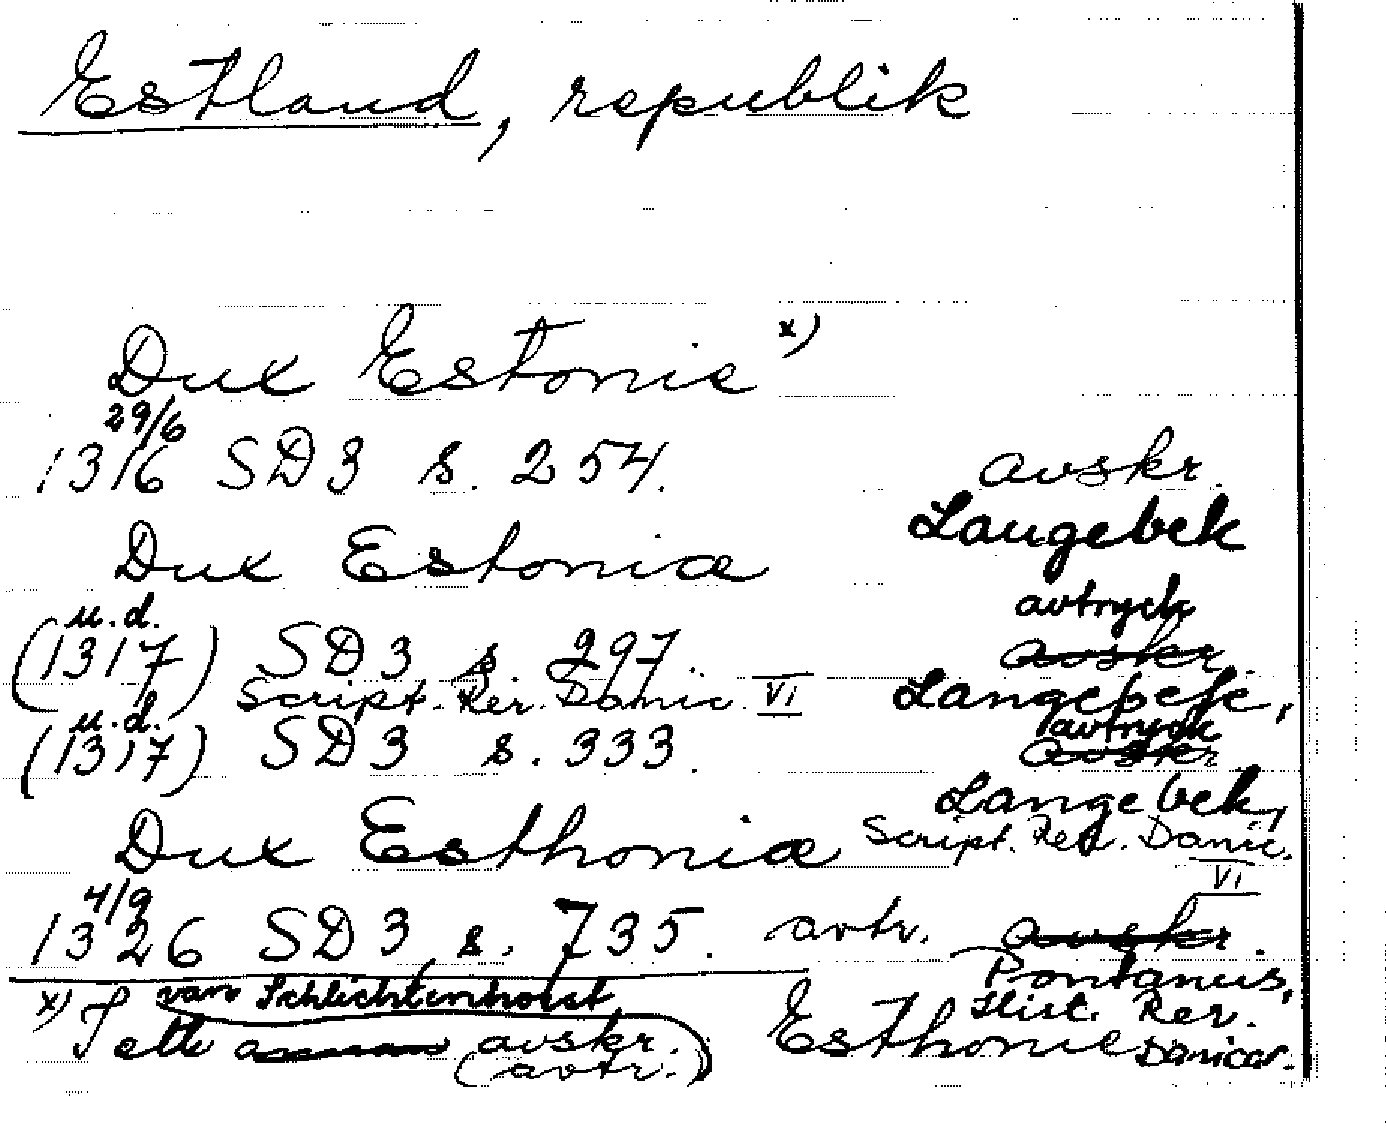 Estland, republik
Dux Estonie x)
29/6
1316 SD 3 s. 254. avskr.
Langebek
Dux Estoniæ
avtryck
u.d.
(1317) SD 3 s. 297. avskr.
Script. Rer. Danic. VI Langebek,
u.d. avtryck
(1317) SD 3 s. 333. avskr
Langebek,
Dux Esthoniæ Script. Rer. Danic.
VI
4/9
1326 SD 3 s. 735. avtr. avskr.
Pontanus,
x) van Schlichtenhorst Hist. Rer.
I ett avskr. Esthonie Danicar.
(avtr.)